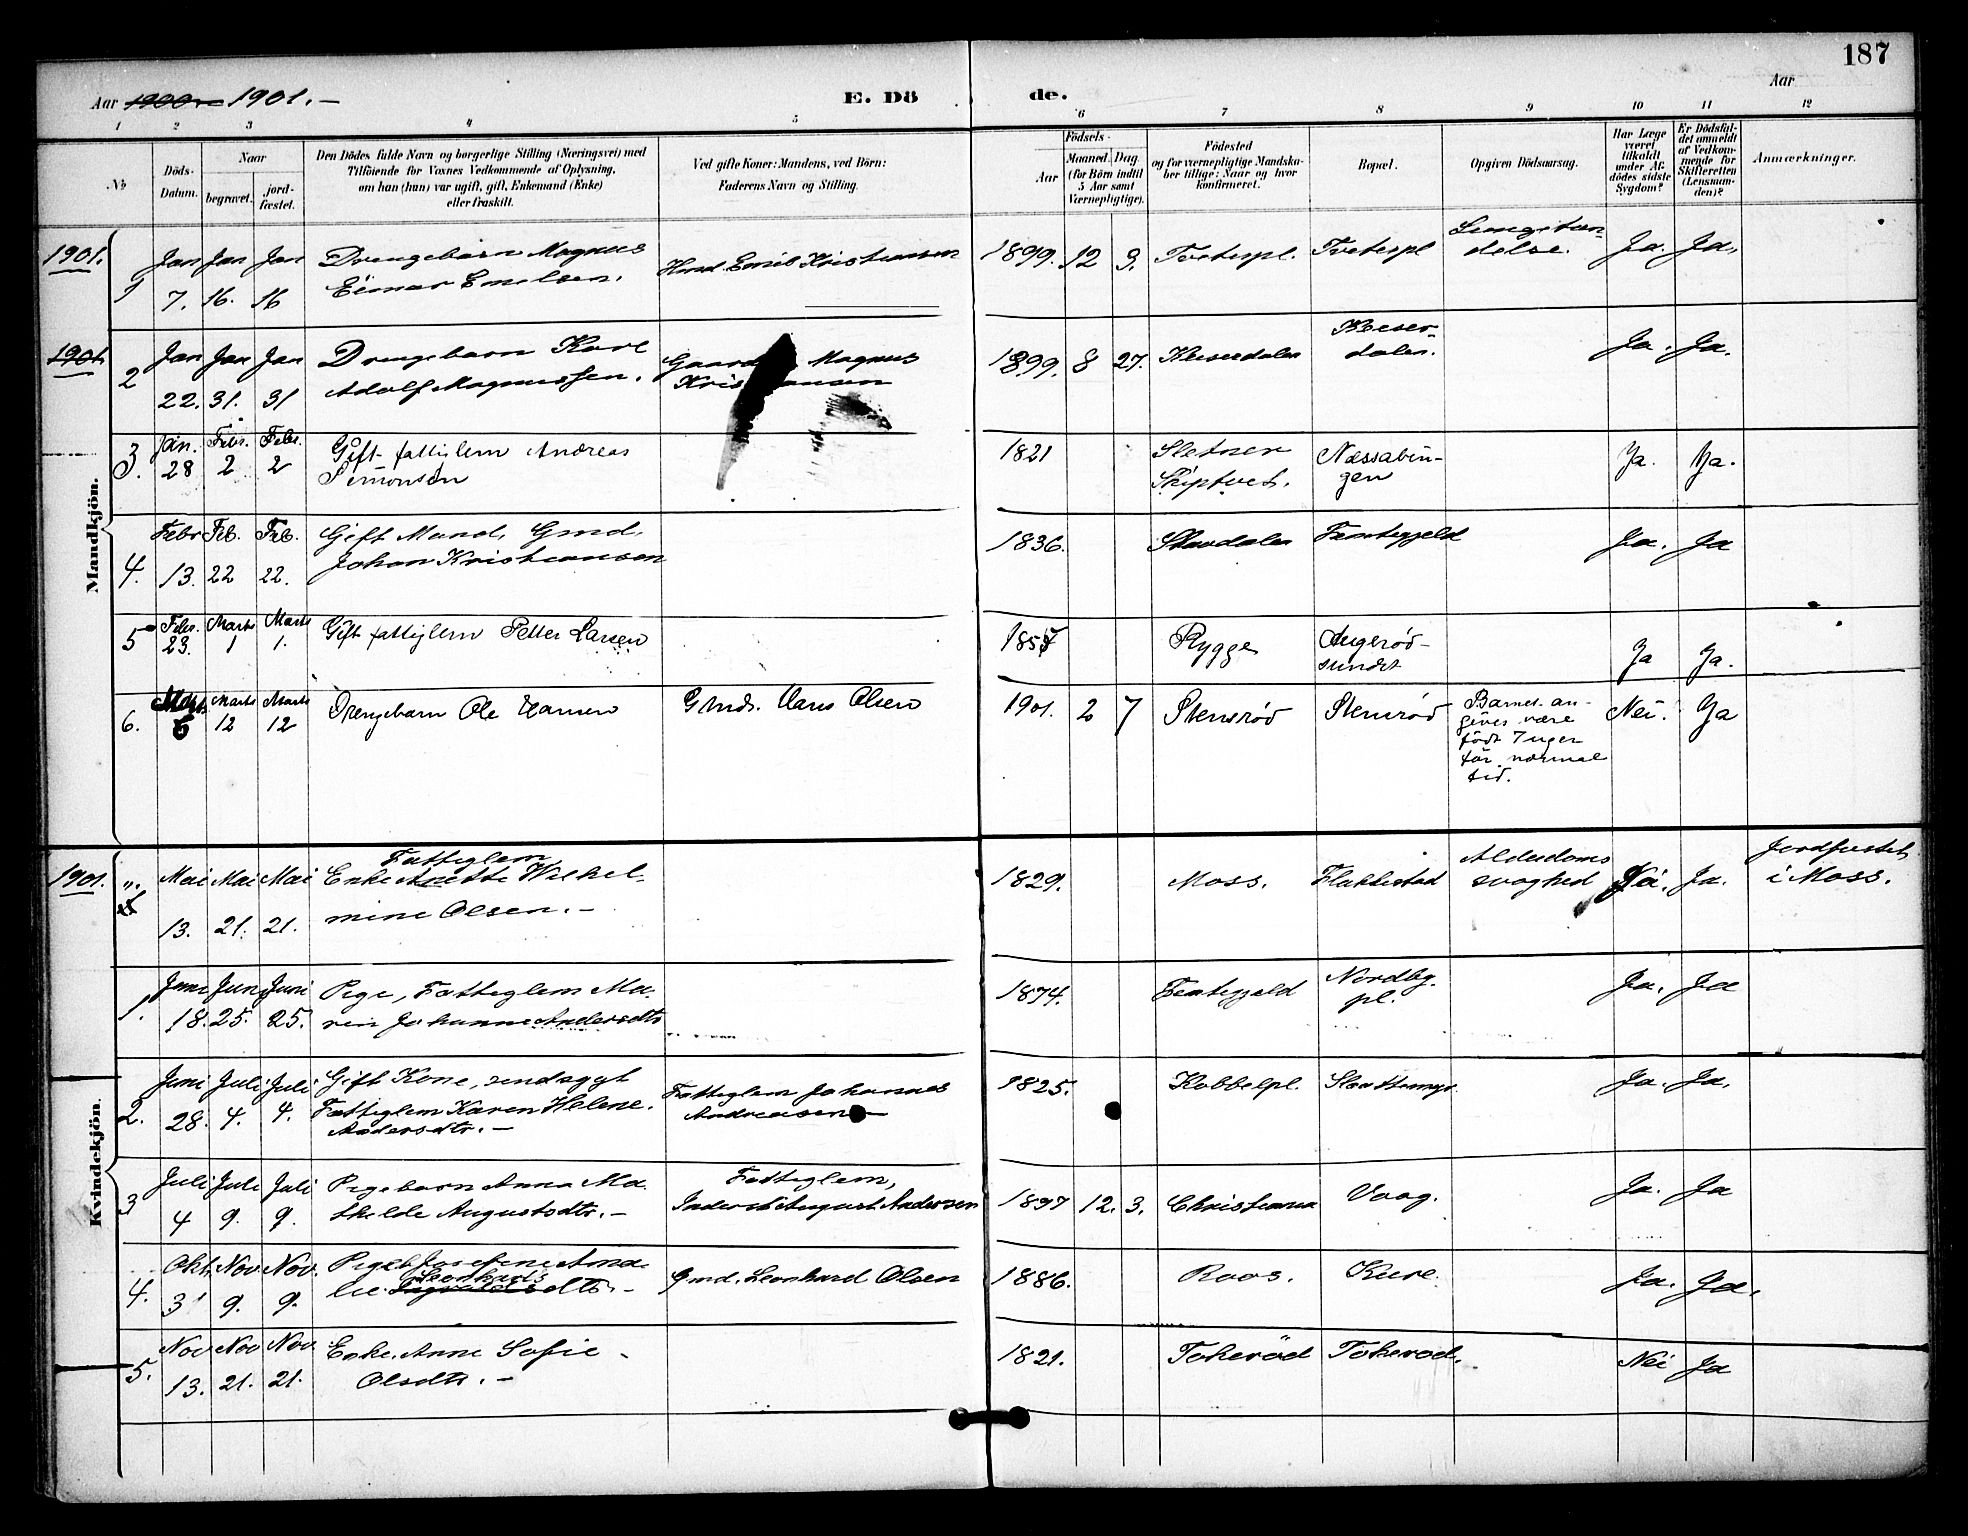 187
Aar 1900 1901. –
E. Dö
de.
Aar
1 2 3 4 5 6 7 8 9 10 11 12
№
Döds-
Datum.
Naar
begravet.
jord-
fæstet.
Den Dödes fulde Navn og borgerlige Stilling (Næringsvei) med
Tilföiende for Voxnes Vedkommende af Oplysning,
om han (hun) var ugift, gift, Enkemand (Enke)
eller fraskilt.
Ved gifte Koner: Mandens, ved Börn:
Faderens Navn og Stilling.
Födsels-
Aar
Maaned. Dag.
(for Börn indtil
5 Aar samt
Værnepligtige).
Födested
og for værnepligtige Mandska-
ber tillige: Naar og hvor
konfirmeret.
Bopæl.
Opgiven Dödsaarsag.
Har Læge
været
tilkaldt
under Af-
dödes sidste
Sygdom?
Er Dödsfal-
det anmeldt
af Vedkom-
mende for
Skifteretten
(Lensman-
den)?
Anmærkninger.
Mandkjön.
1901.
1 Jan 7. Jan 16. Jan 16
Drengebarn Magnus
Einar Emilsen.
Hmd. Emil Kristiansen
1899. 12 9. Tveterpl. Tveterpl
Lungebæn-
delse.
Ja. Ja.
1901.
2 Jan 22. Jan 31. Jan 31
Drengebarn Karl
Adolf Magnussen.
Magnus
1899. 8 27.
Ja. Ja.
3. Jan. 28 Febr. 2 Febr. 2
Gift fattiglem Andreas
Simonsen
1821
Sletner
Skiptvet.
Næssabin-
gen
Ja. Ja.
4. Febr 13. Feb. 22 Feb. 22.
Gift Mand, Gmd.
Johan Kristiansen
1836. Ja. Ja
5 Febr. 23. Marts 1 Marts 1.
Gift fattiglem Petter Larsen
Rygge
sundet
Ja Ja.
6. Marts Marts 12 Marts 12
Drengebarn Ole Hansen
Gmd. Hans Olsen
1901. 2 7 Stensrød Stensrød
Barnet an-
gives være
födt 7 uger
för normal
tid.
Nei. Ja
Kvindekjön.
1901.
Mai 13. Mai 21. Mai 21.
Fattiglem
Enke Anette Wilhel-
mine Olsen. –
1829. Moss. Flakkestad
Alderdoms
svaghed
Ja.
Jordfæstet
i Moss.
1. Juni 18. Juni 25. Juni 25.
Pige, Fattiglem Ma-
ren Johanne Andersdtr
1874.
Nordby
pl.
Ja. Ja
2. Juni 28. Juli 4. Juli 4.
Gift Kone, sindssygt
Fattiglem Karen Helene
Andersdtr. –
Fattiglem Johannes
Andreasen –
1825. Kobbelpl.
Ja. Ja.
3 Juli 4 Juli 9. Juli 9.
Pigebarn Anna Ma-
thilde Augustsdtr. –
Fattiglem,
Inderst August Andersen
1897 12. 3. Christiania Vaag.
Ja. Ja
4. Okt. 31 Nov 9. Nov. 9.
Pigeb Josefine Ama-
lie Leonhards dtr. –
Gmd. Leonhard Olsen
1886. Roos. Kure.
Ja. Ja.
5. Nov 13. Nov 21. Nov. 21.
Enke Anne Sofie
Olsdtr. –
1821. Tokerød Tokerød.
Nei Ja